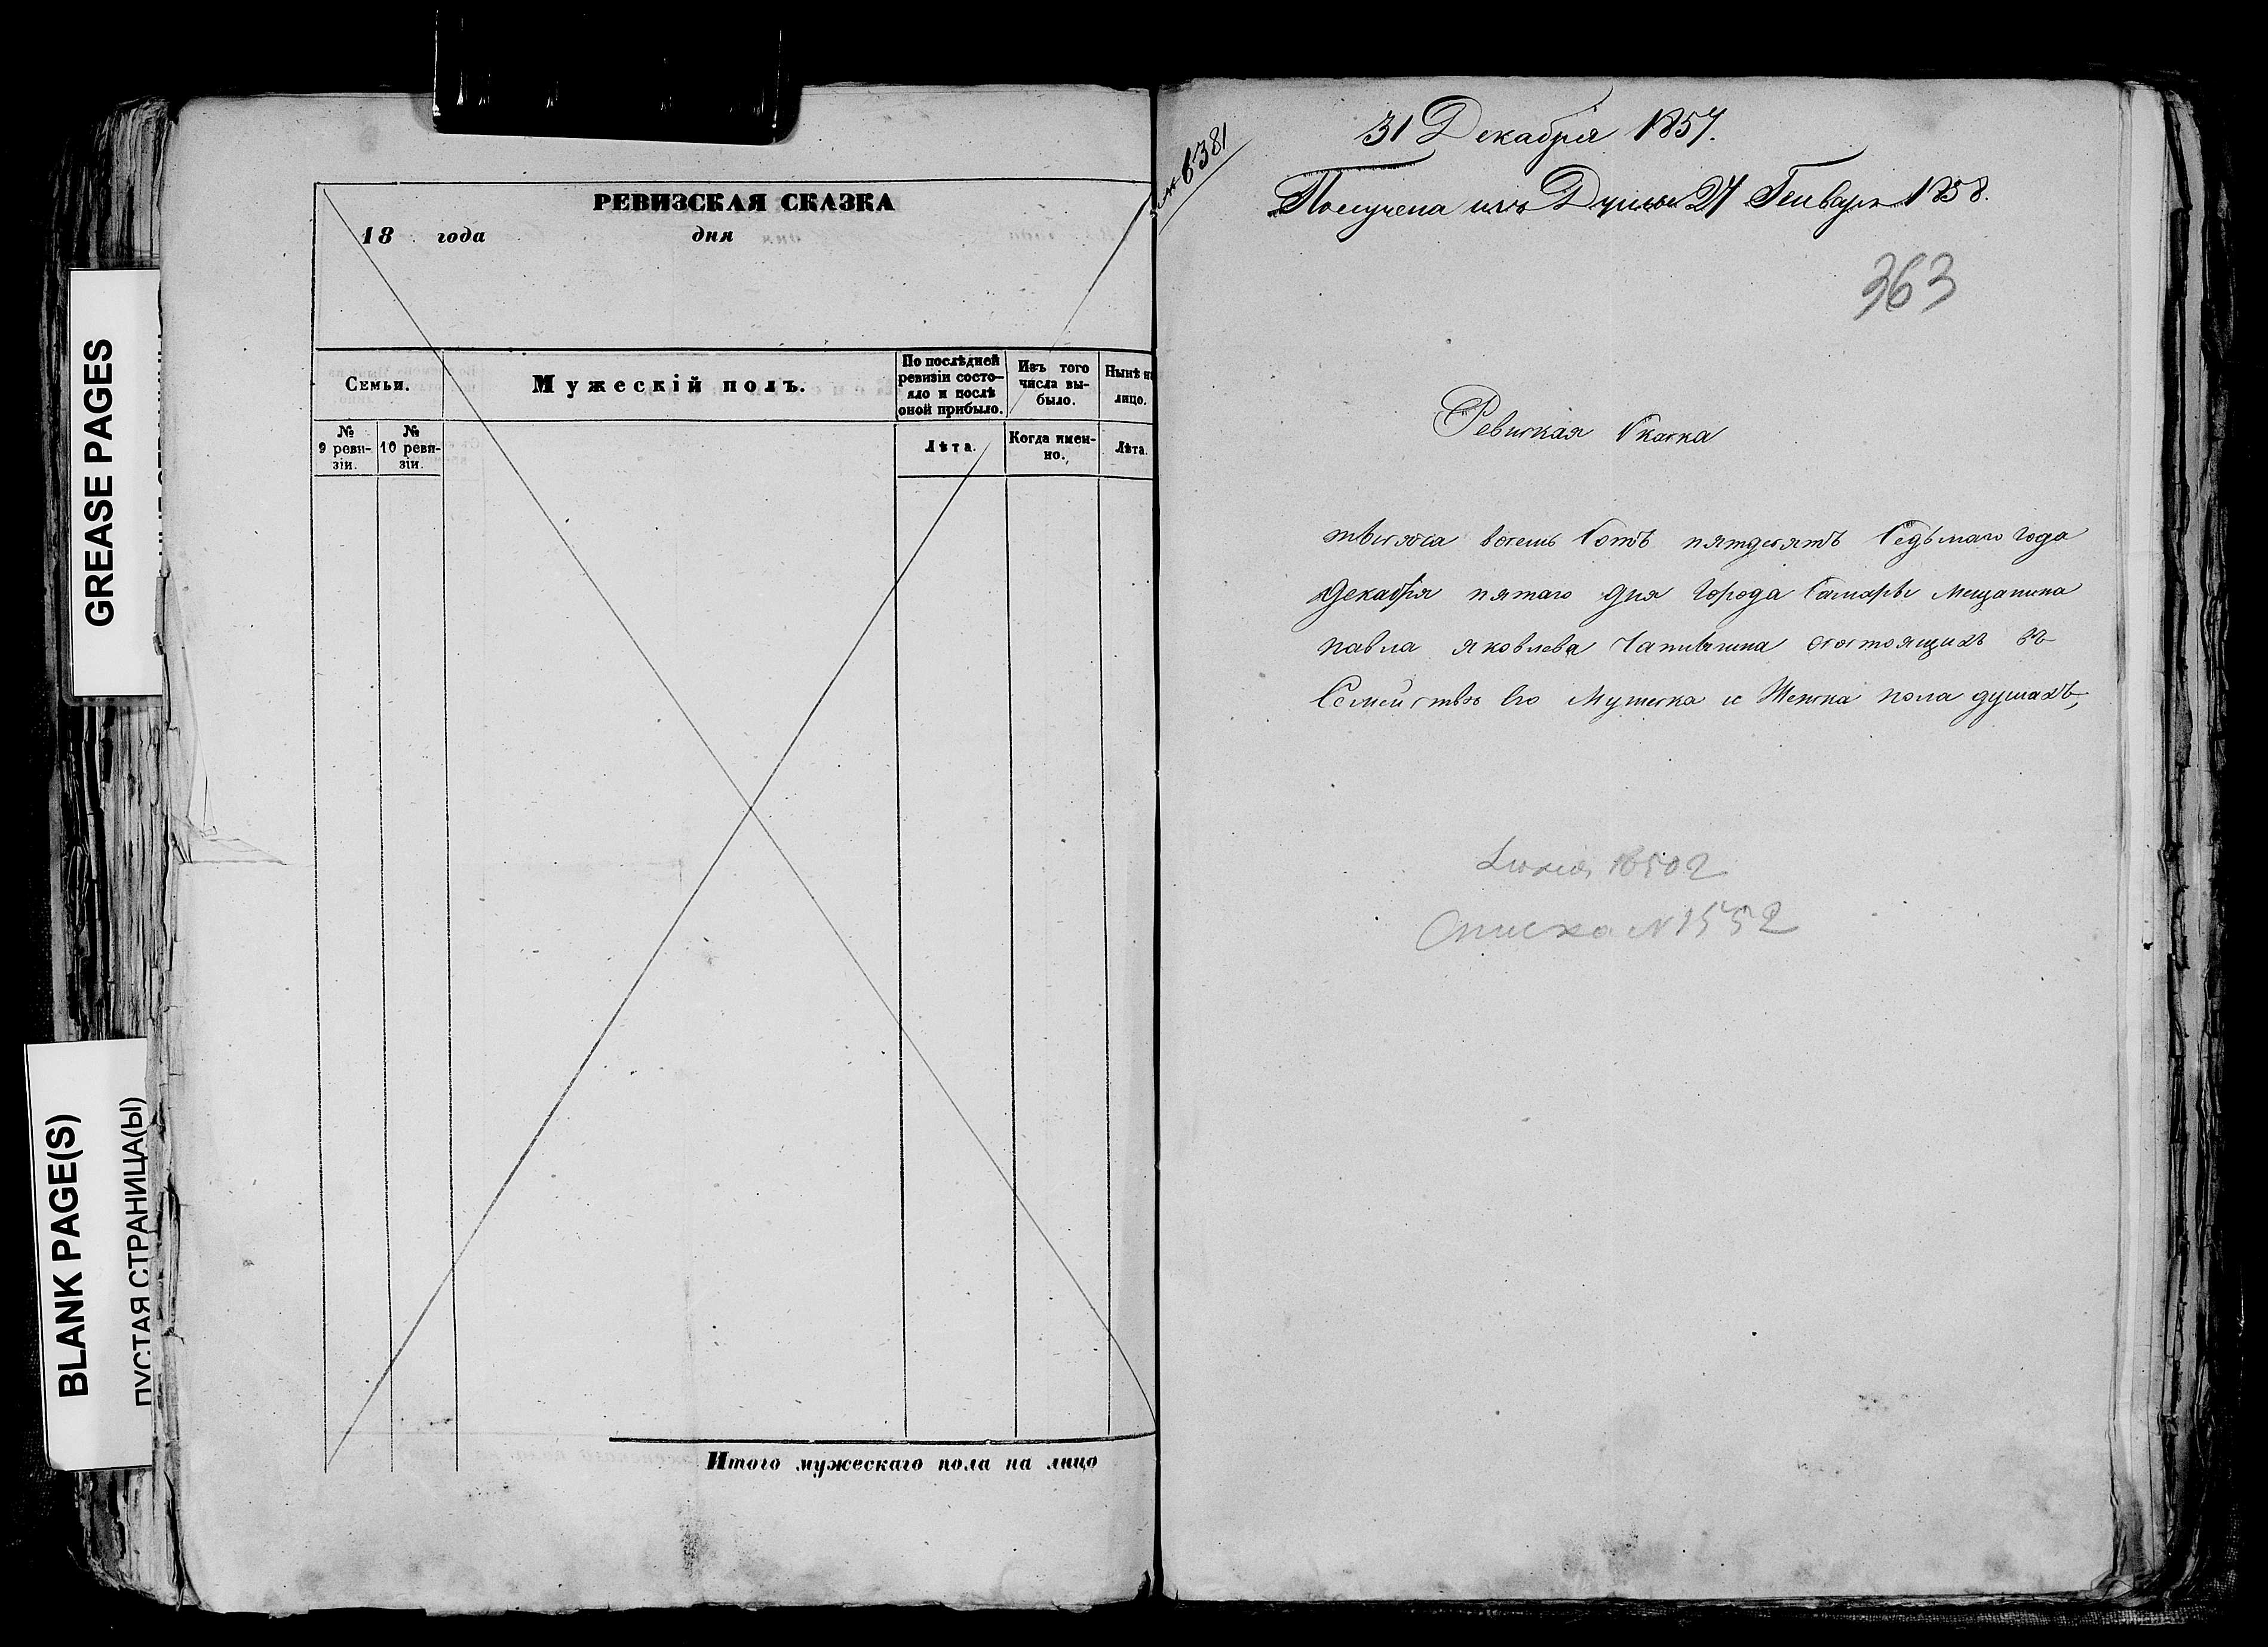 GREASE PAGES
BLANK PAGE(S)
ПУСТАЯ СТРАНИЦА(Ы)
РЕВИЗСКАЯ СКАЗКА
18 года дня
Семьи.
Мужескій полъ.
По послѣдней ревизіи состо-
яло и послѣ оной прибыло.
Изъ того числа вы-
было.
Нынѣ на лицо.
№ 9 реви-
зіи.
№ 10 реви-
зіи.
Лѣта.
Когда имен-
но.
Лѣта.
Итого мужескаго пола на лицо
6381
31 Декабря 1857.
Получена изъ Думы 27 Генваря 1858.
363
Ревиская Скаска
тысяча восемь сотъ пятдесятъ седьмаго года
Декабря пятаго дня города Самары Мещанина
павла яковлева состоящихъ въ
Семействѣ его Мужеска и Женска пола душахъ,
18502
Описка N 1552